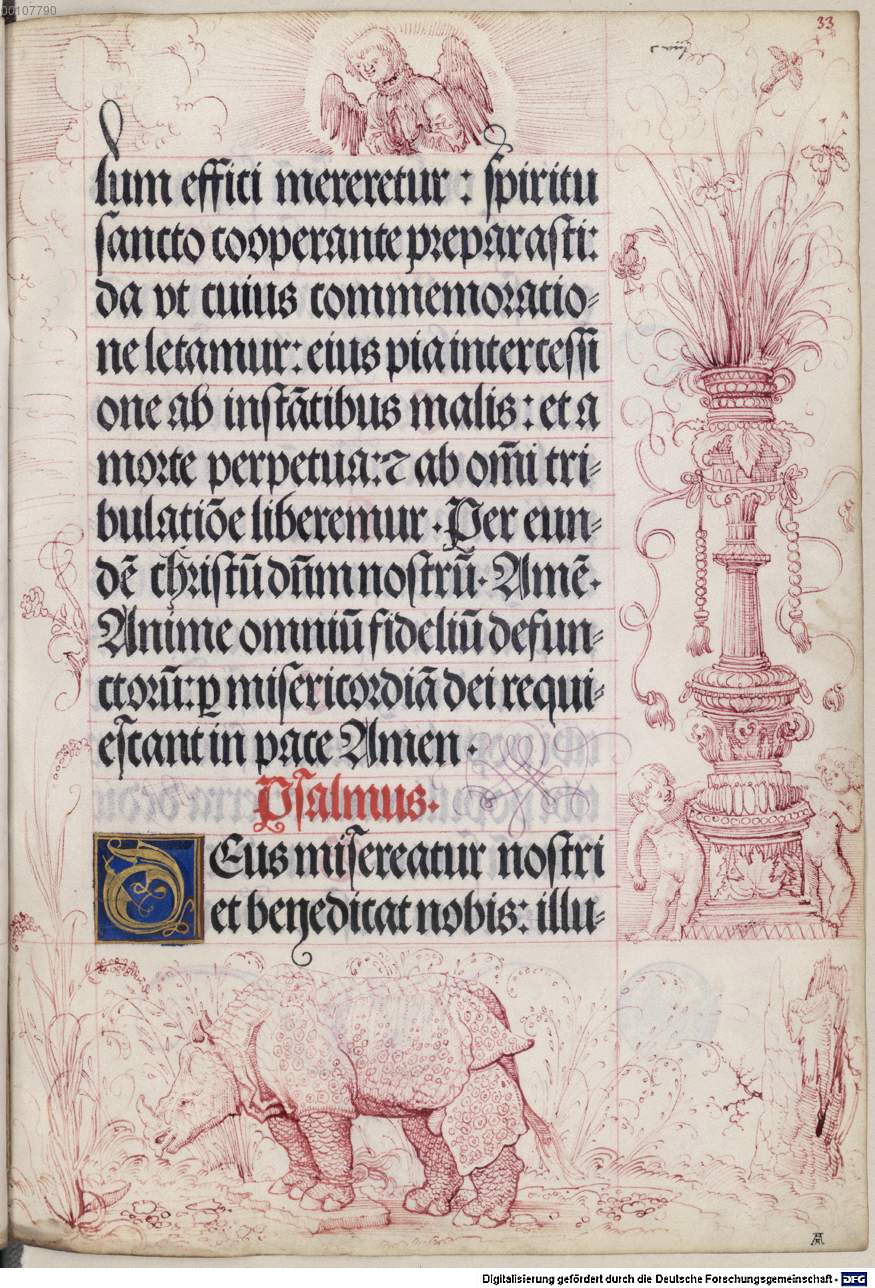 00107790
33
lum effici mereretur : spiritu
sancto cooperante preparasti:
da vt cuius commemoratio-
ne letamur: eius pia intercessi
one ab instātibus malis: et a
morte perpetua: ⁊ ab om̄i tri-
bulatiōe liberemur. Per eun-
dē christū dn̄m nostrū. Amē.
Anime omniū fideliū defun-
ctorū: ꝑ misericordiā dei requi-
escant in pace Amen.
Psalmus.
Deus misereatur nostri
et benedicat nobis: illu-
Digitalisierung gefördert durch die Deutsche Forschungsgemeinschaft - DFG